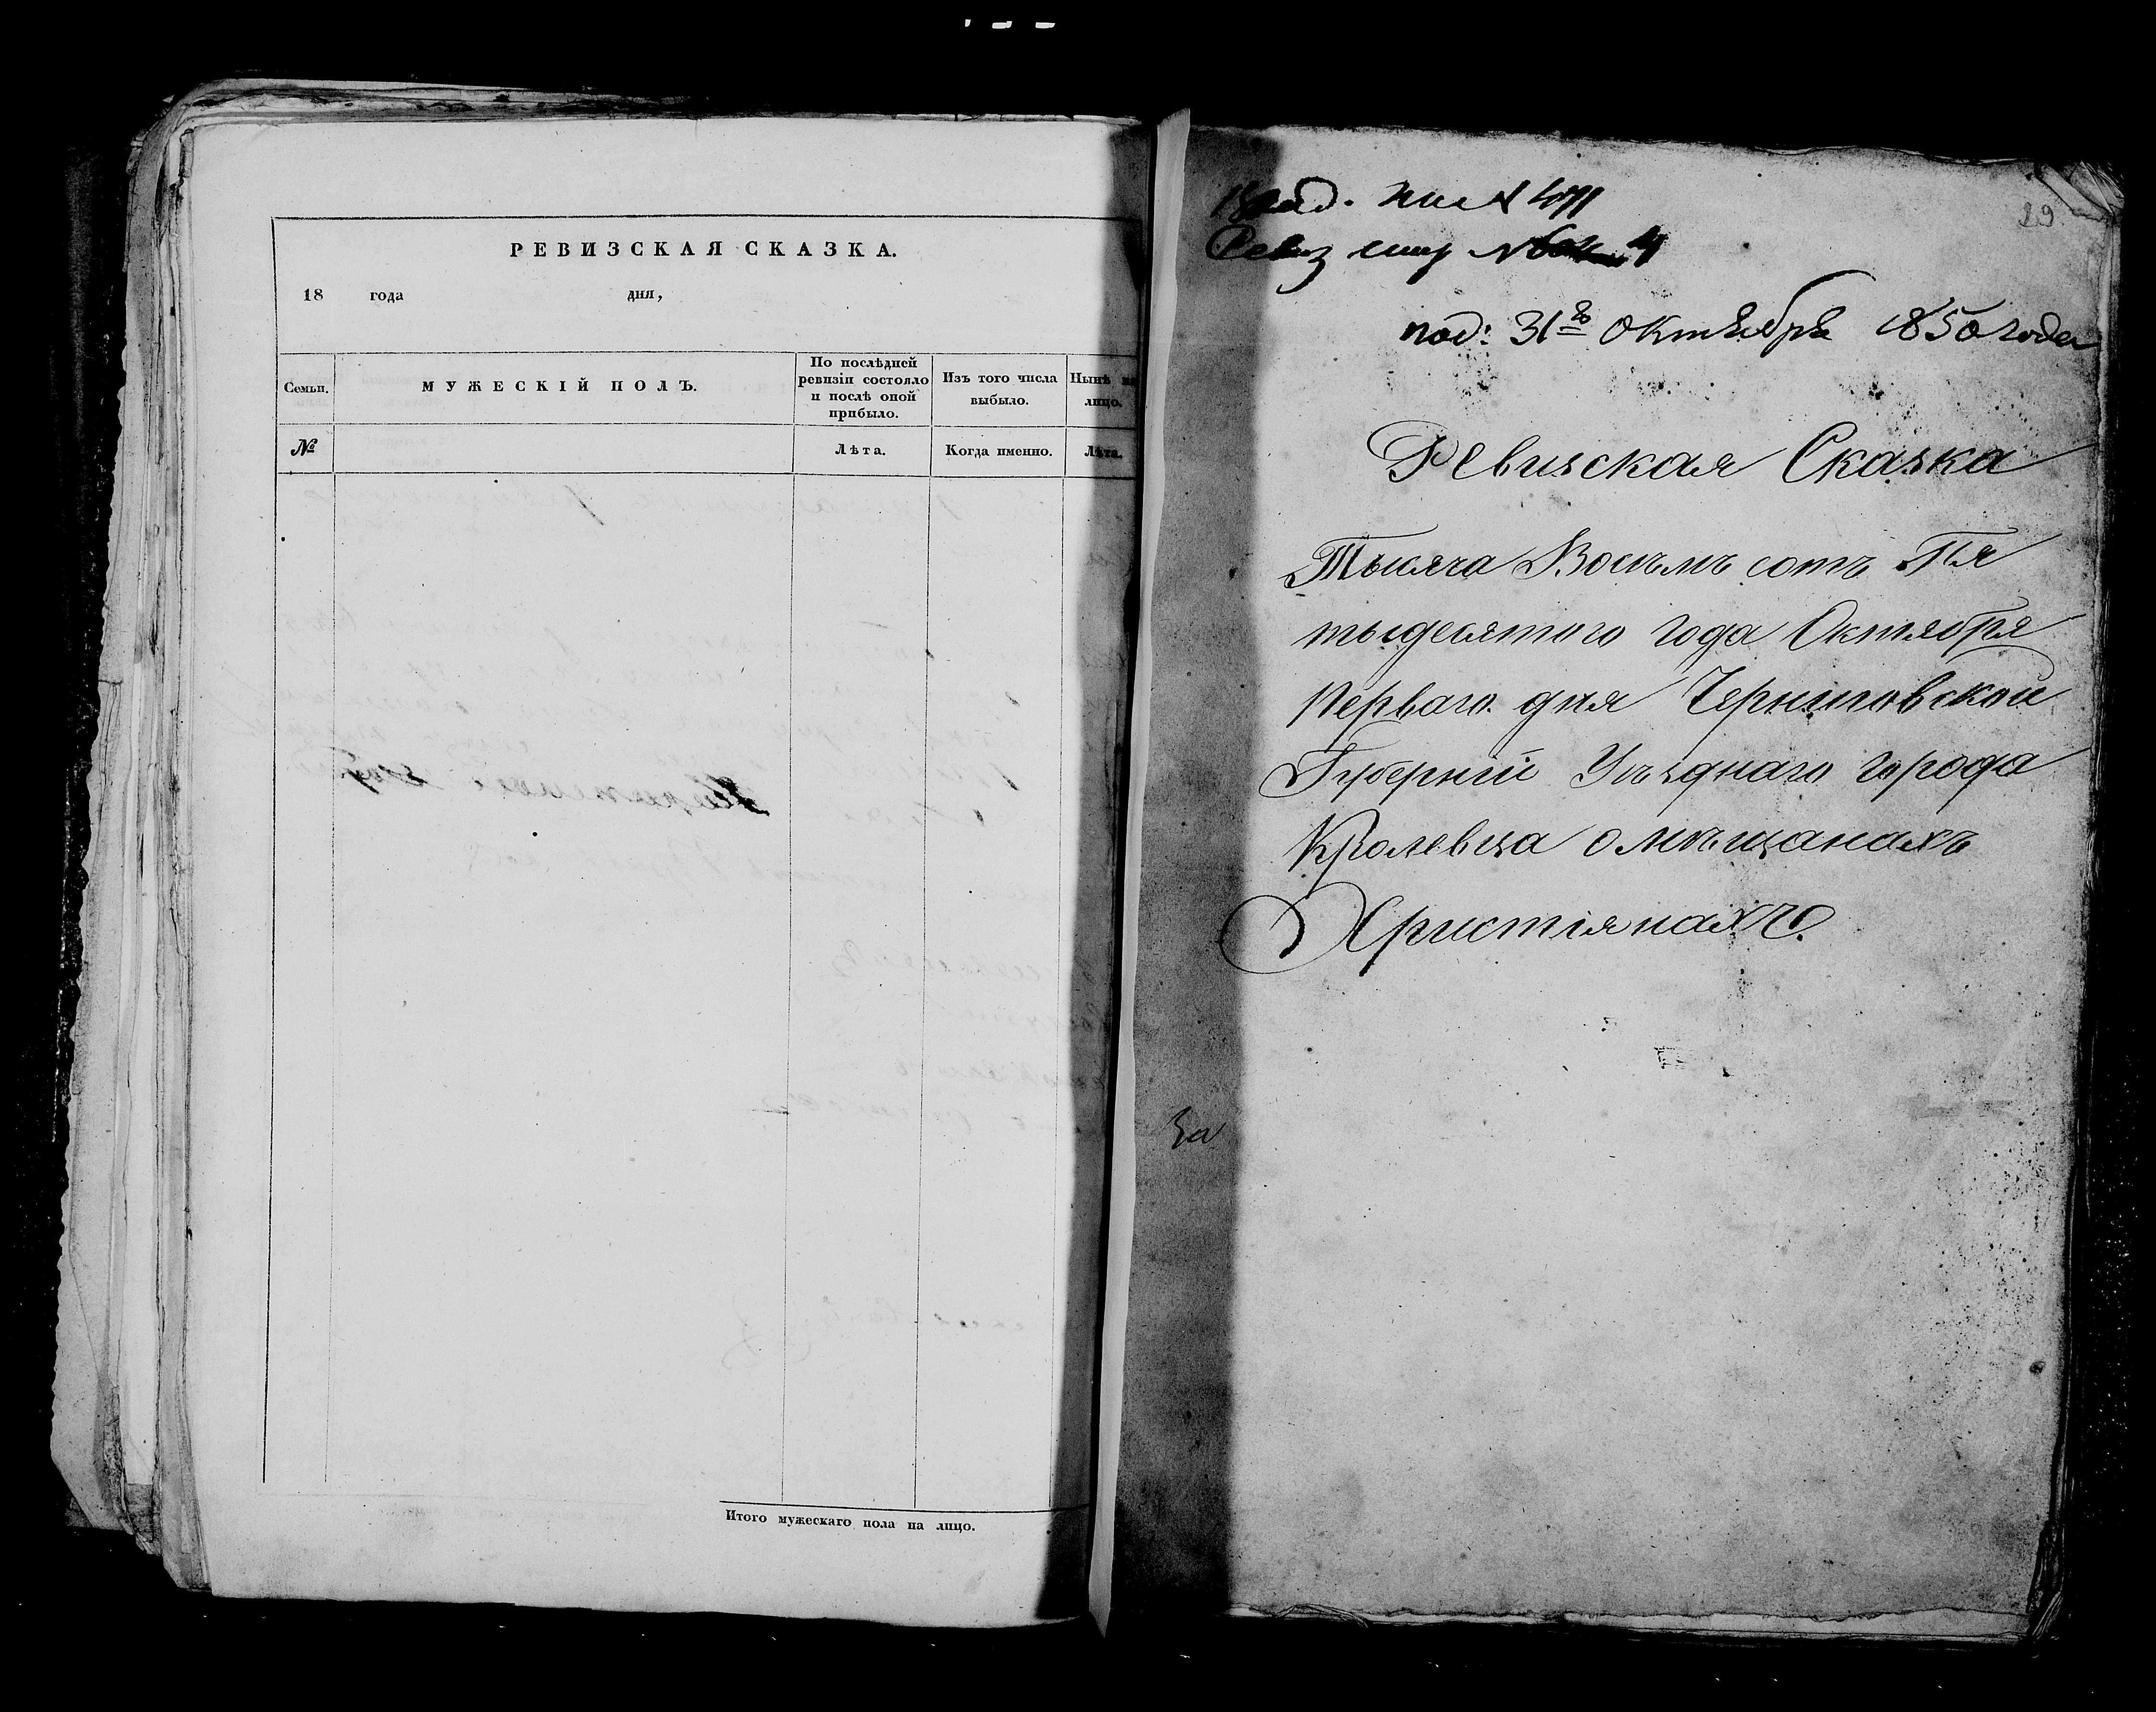 РЕВИЗСКАЯ СКАЗКА.
18 года дня,
Семьи.
МУЖЕСКІЙ ПОЛЪ.
По послѣдней
ревизіи состояло
и послѣ оной
прибыло.
Изъ того числа
выбыло.
Нынѣ на
лицо.
№
Лѣта.
Когда именно.
Лѣта.
Итого мужескаго пола на лицо.
29
Ревиз
под: 31го Октября 1850 года
Ревизская Сказка
Тысяча Восемь сотъ Пя
тыдесятого года Октября
Перваго дня Черниговской
Губерніи Уѣзднаго города
Кролевца о мѣщанахъ
Христіянахъ.
За